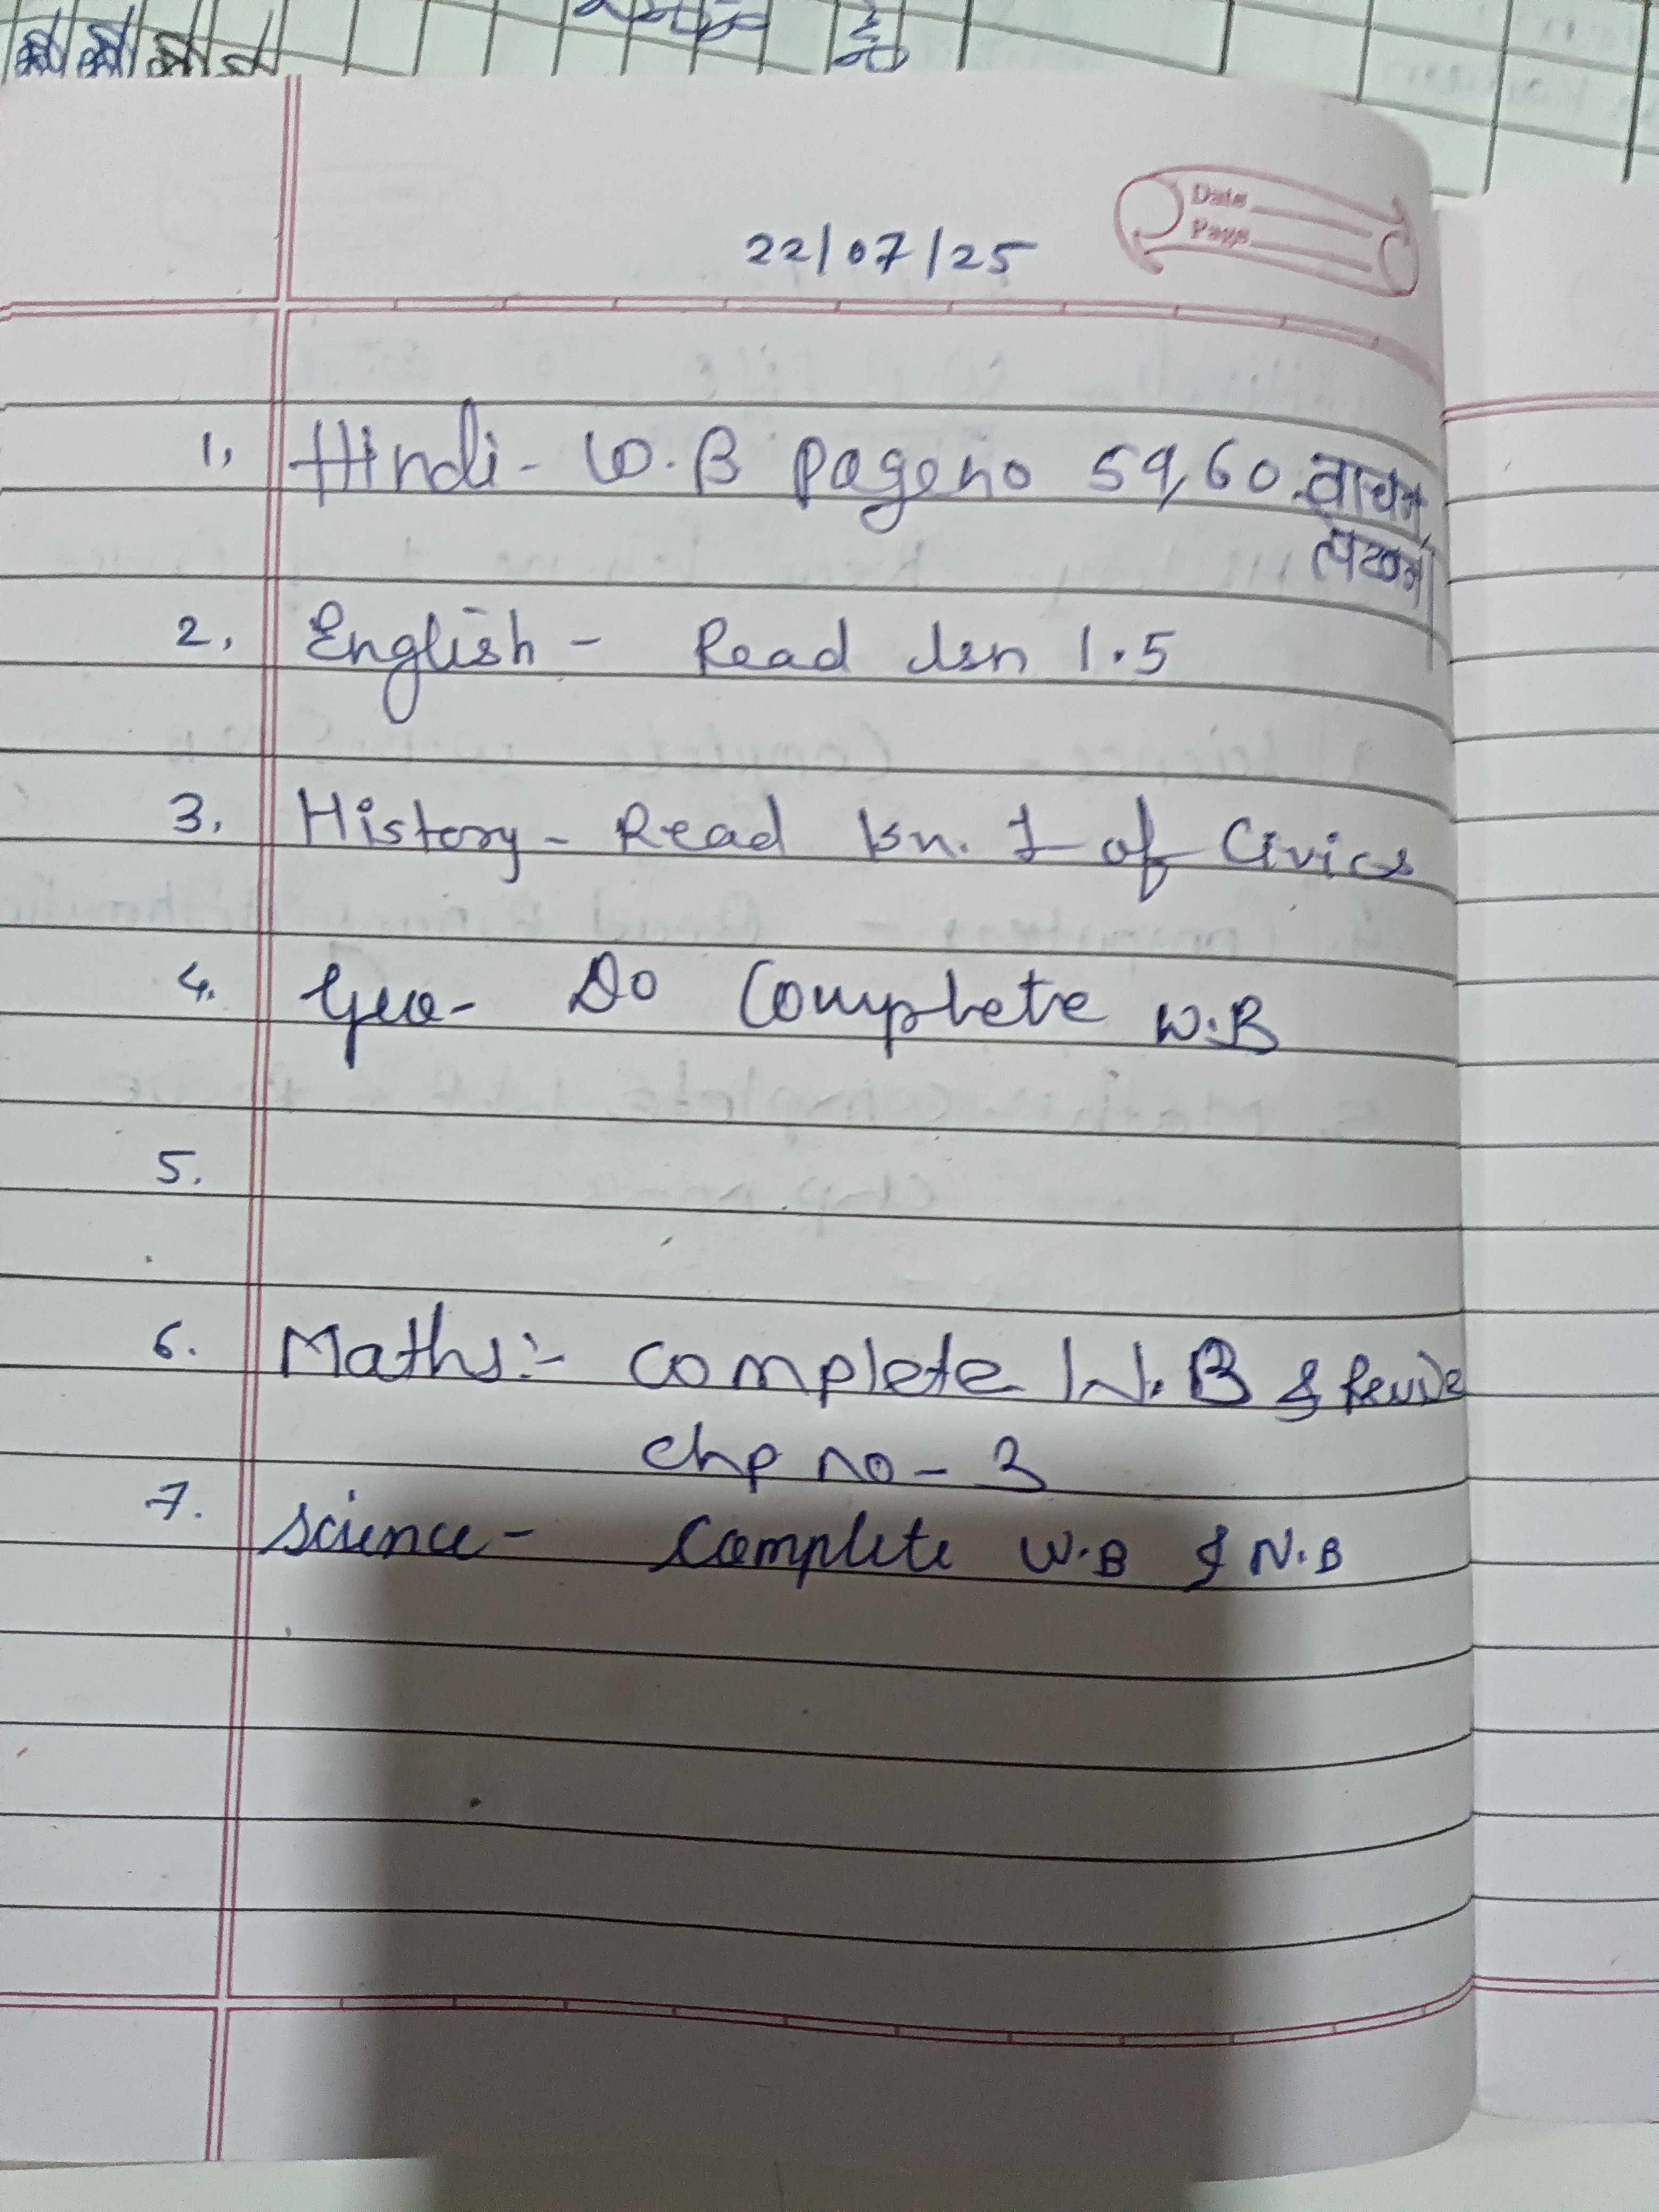 Date
Page
22/07/25
1, Hindi - W.B Page no 59,60. वाचन
2, English - Read lsn 1.5
3, History - Read lsn. 1 of Civics
4. Geo - Do Complete W.B
5.
6. Maths:- Complete W.B & Revise
chp no - 3
7. Science - Complete W.B & N.B